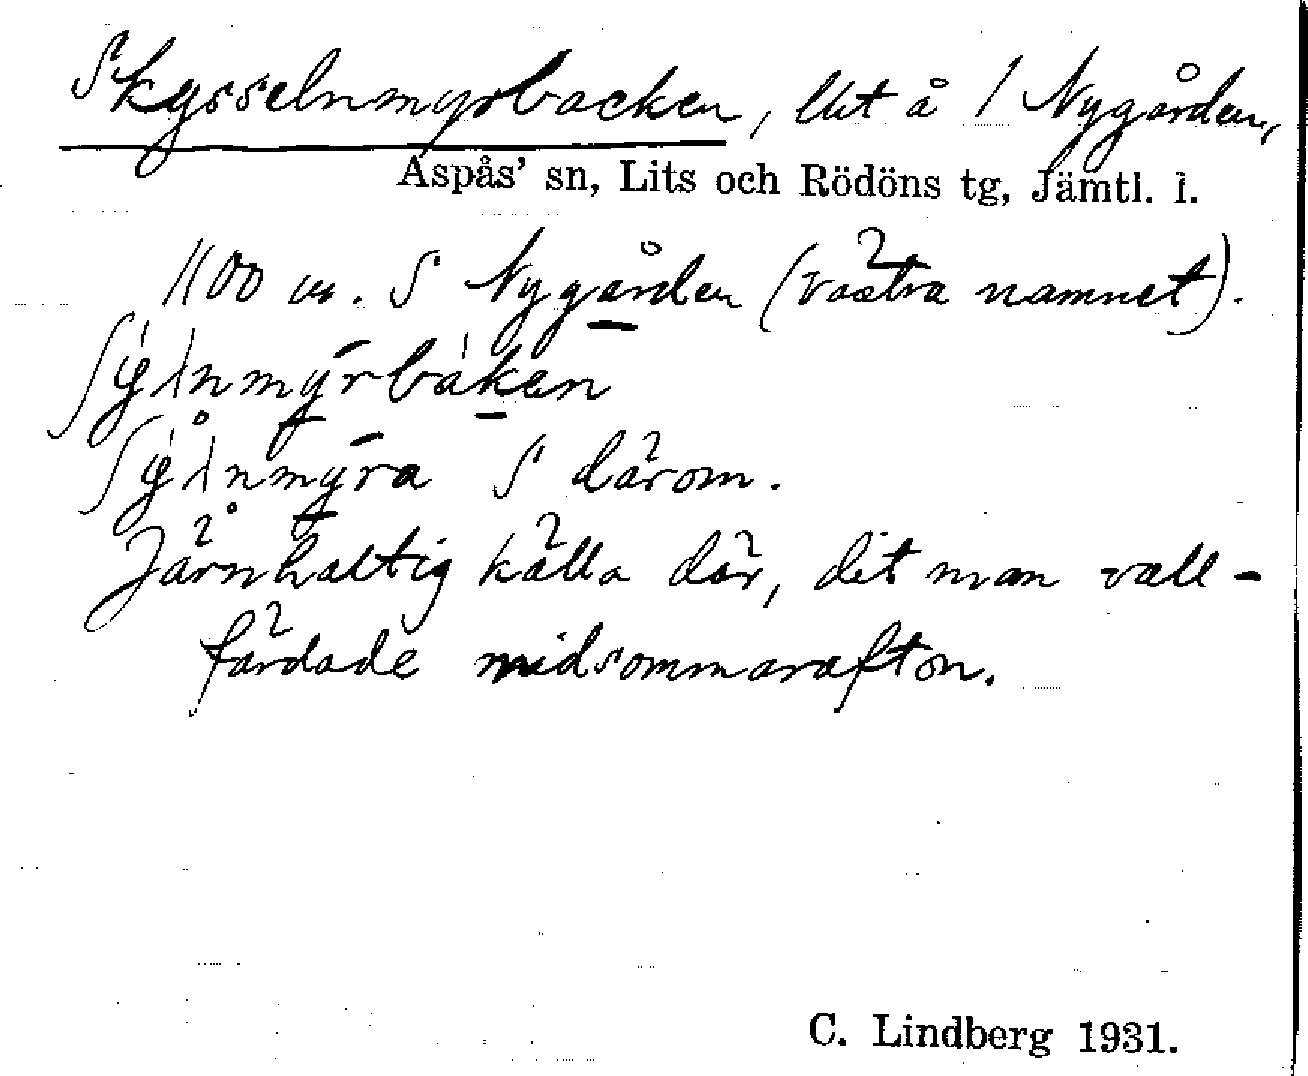 Skysselnmyrbacken, litet å / Nygården,
Aspås' sn, Lits och Rödöns tg, Jämtl. l.
1100 m. S Nygården (västra namnet).
S därom.
Järnhaltig källa där, dit man vall-
färdade midsommarafton.
C. Lindberg 1931.